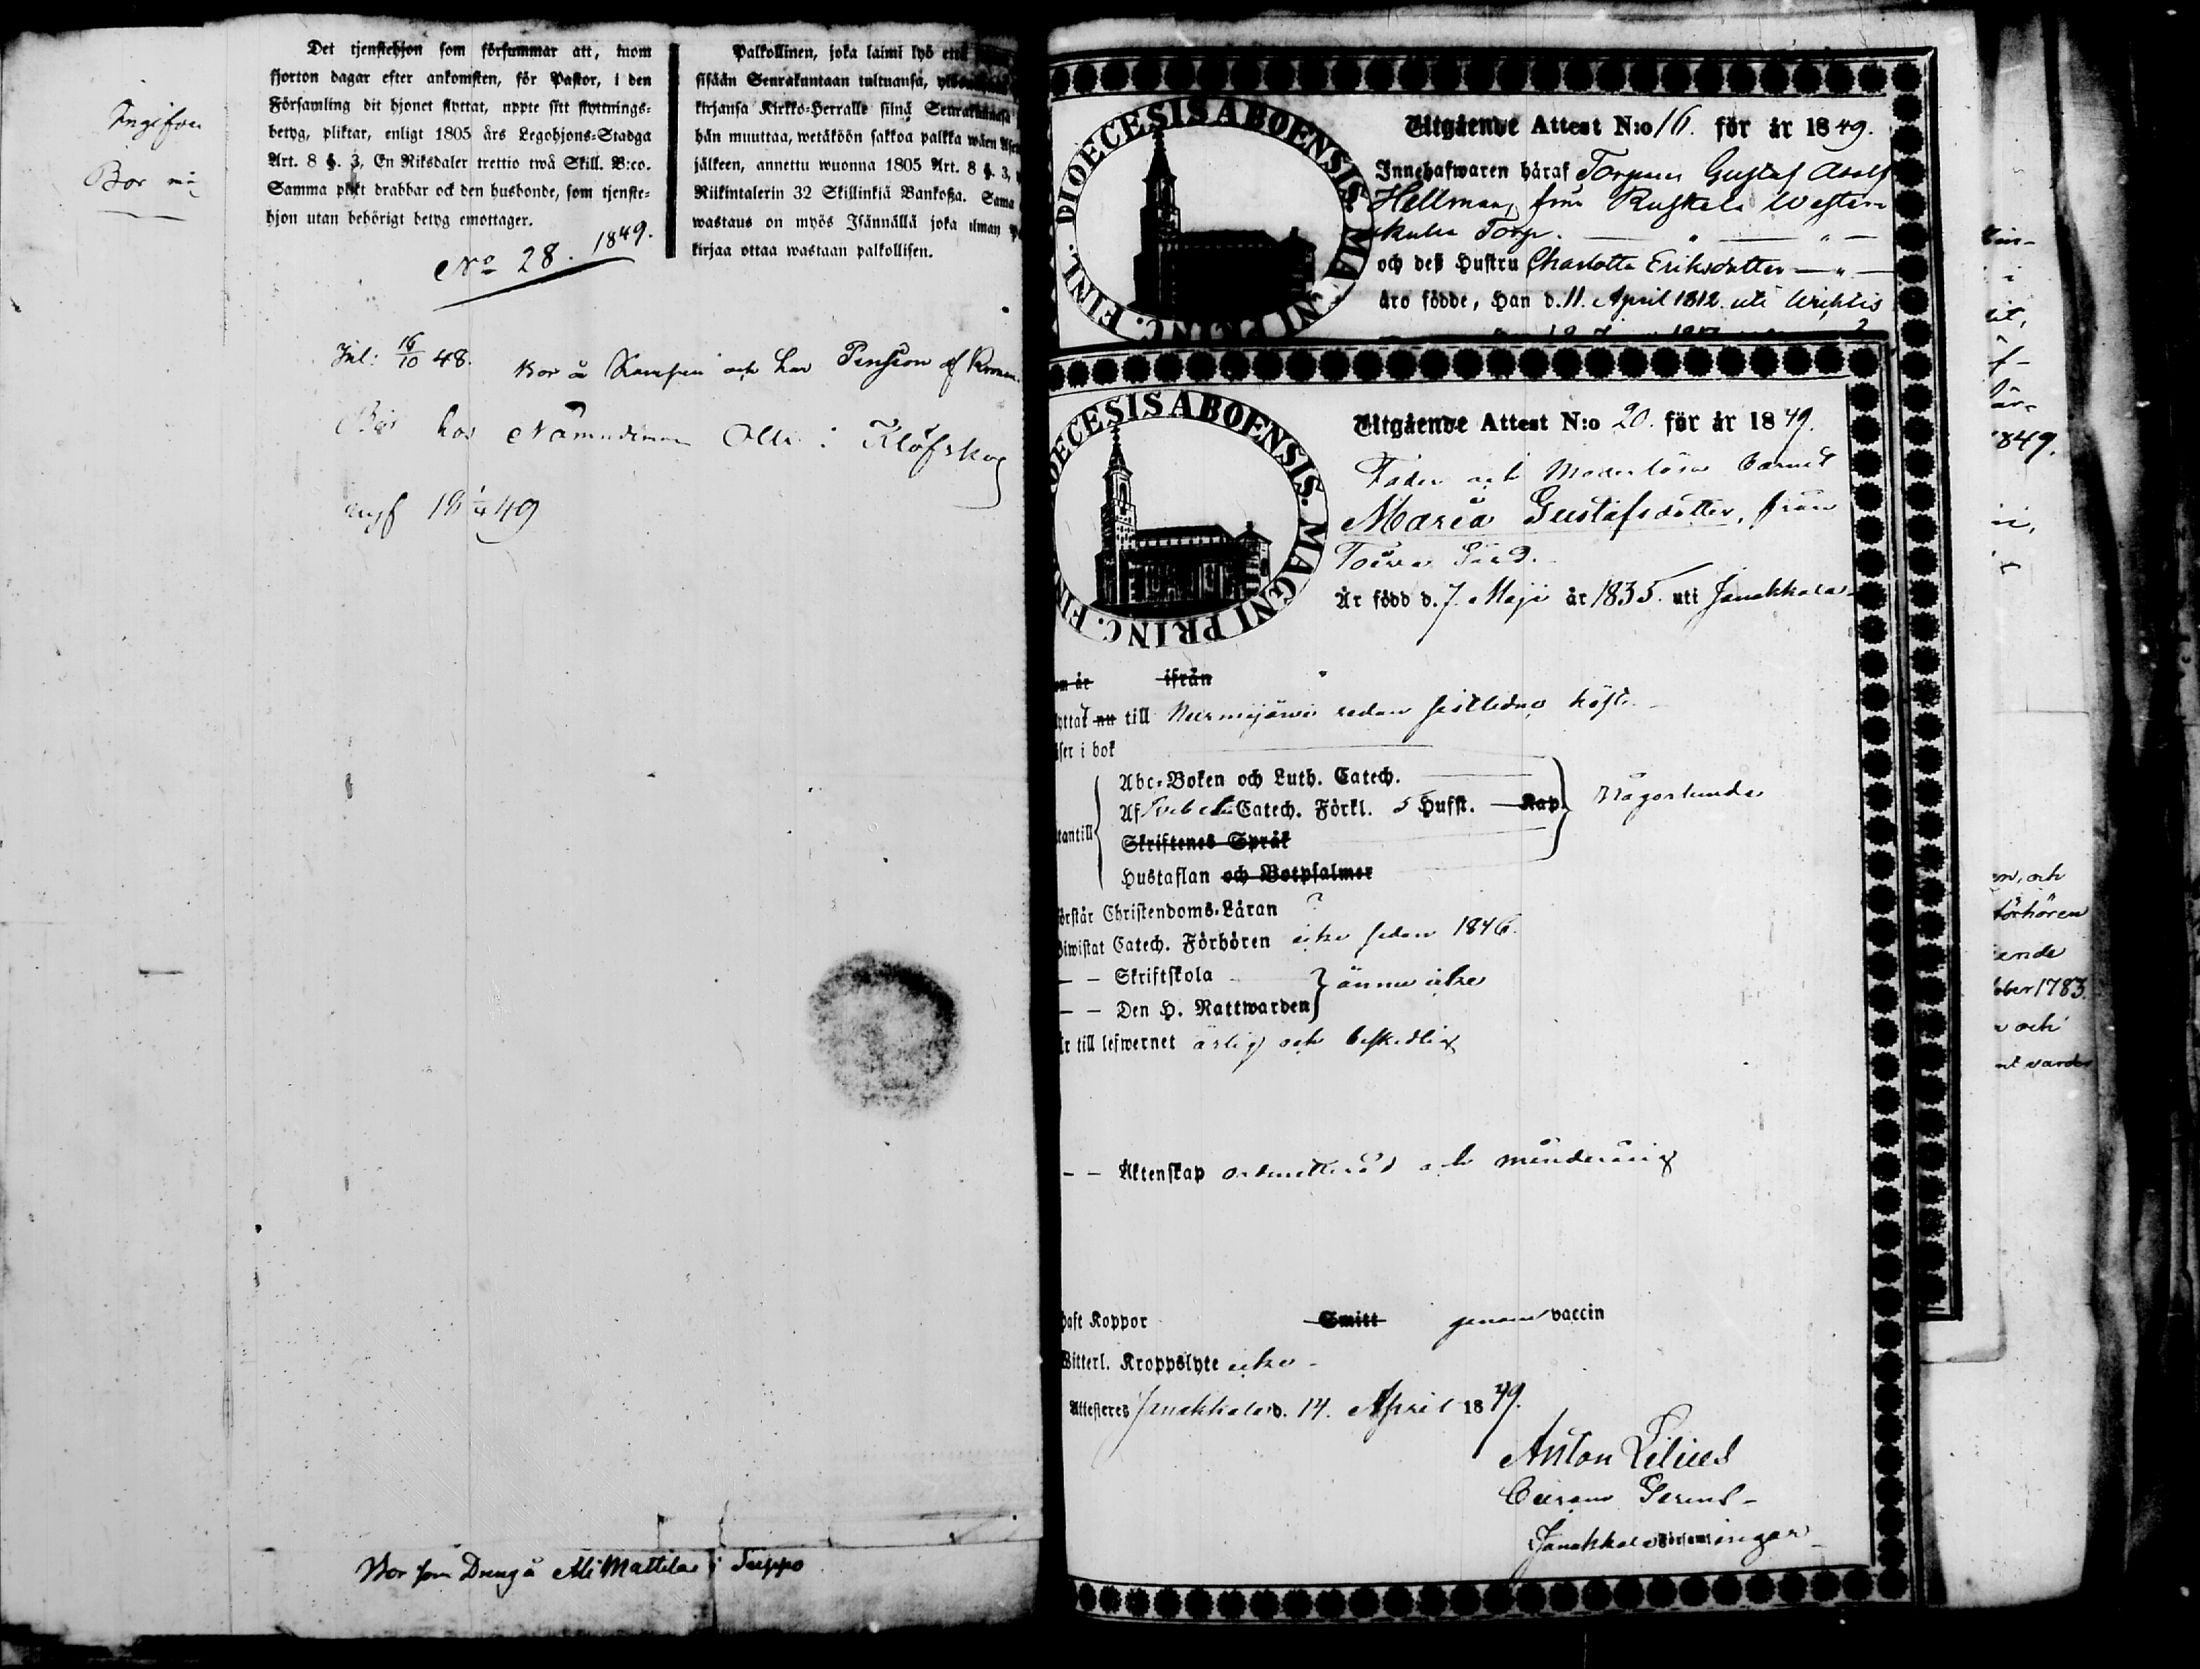 Bor
Det tjenstehjon som försummar att, inom
fjorton dagar efter ankomsten, för Pastor, i den
Församling dit hjonet flyttat, uppte sitt flyttnings-
betyg, pliktar, enligt 1805 års Legohjons-Stadga
Art. 8 §. 3, En Riksdaler trettio twå Skill. B:co.
Samma plikt drabbar ock den husbonde, som tjenste-
hjon utan behörigt betyg emottager.
Palkollinen, joka laimi lyö
sisään Seurakuntaan tultuansa,
kirjansa Kirkko-Herralle siinä Seurakunnasa
hän muuttaa, wetäköön sakkoa palkka wäen
jälkeen, annettu wuonna 1805 Art. 8 §. 3,
Riikintalerin 32 Skillinkiä Bankosa. Sama
wastaus on myös Isännällä joka ilman
kirjaa ottaa wastaan palkollisen.
No 28. 1849.
Inl: 16/10 48. Bor å och har Pension af Kronan.
Bor hos Nämndeman Olli i Klöfskog
49
Bor som Dreng å Ali Mattila i Suppo
DIOECESIS ABOENSIS. MAGNI PRINC. FINL.
Utgående Attest N:o 16. för år 1849.
Innehafwaren häraf Torparen Gustaf Adolf
Hellman, från Ruskala Western
Torp.
och deß Hustru Charlotta Eriksdotter
äro födde, Han d. 11. April 1812. uti Wichtis
DIOECESIS ABOENSIS. MAGNI PRINC. FIN
Utgående Attest N:o 20. för år 1849.
Fader och Moderlösa barnet
Maria Gustafsdotter, från
Gård.
Är född d. 7. Maji år 1835. uti Janakkala
om år ifrån
yttat nu till Nurmijärvi redan sistledne höst.
äser i bok
Abc-Boken och Luth. Catech.
Af Svebelii Catech. Förkl. 5 Hufst. Kap.
Någorlunda
tantill
Skriftenes Språk
Hustaflan och Botpsalmer
örstår Christendoms-Läran ?
biwistat Catech. Förhören icke sedan 1846.
— — Skriftskola
ännu icke
— — Den H. Nattwarden
r till lefwernet ärlig och beskedlig
— — Äktenskap och minderårig
haft Koppor Smitt genom vaccin
Witterl. Kroppslyte icke
Attesteres Janakkala d. 14. April 1849.
Anton Lilius
Janakkala Församlingar
849.
en, och
förhören
ande
ber 1783.
och